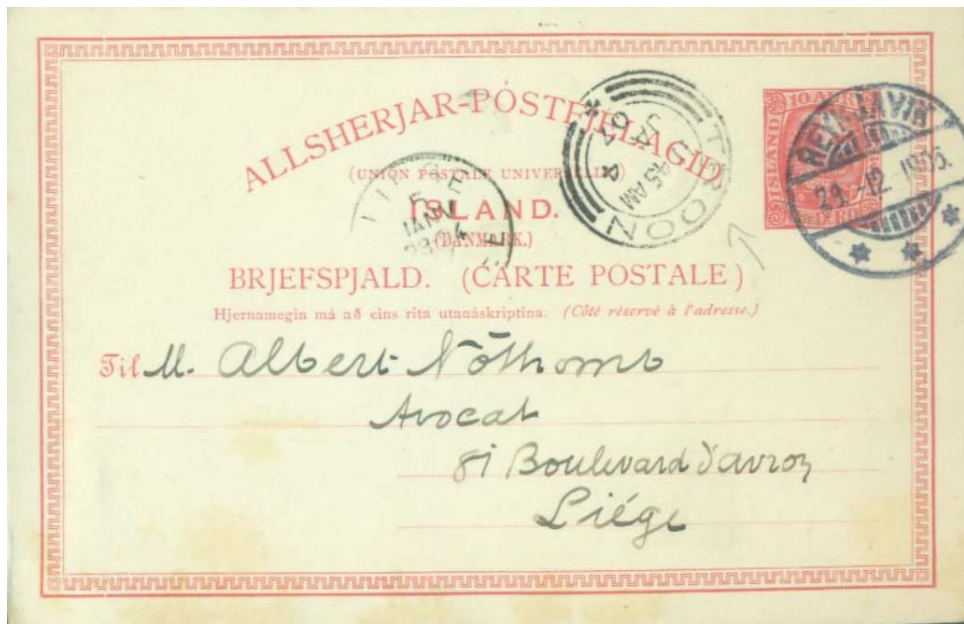 ALLSHERJAR-PÓSTFJELAGIÐ
(UNION POSTALE UNIVERSELLE)
ÍSLAND.
(DANMARK.)
BRJEFSPJALD. (CARTE POSTALE)
Hjernamegin má að eins rita utanáskriptina. (Côté réservé à l'adresse.)
Til M. Albert Nothomb
Avocat
81 Boulevard d'avroy
Liége
10 AUR
ISLAND
REYKJAVIK
29.-12. 1903.
TROON
45 AM
JA 4
04
LIEGE
JANV